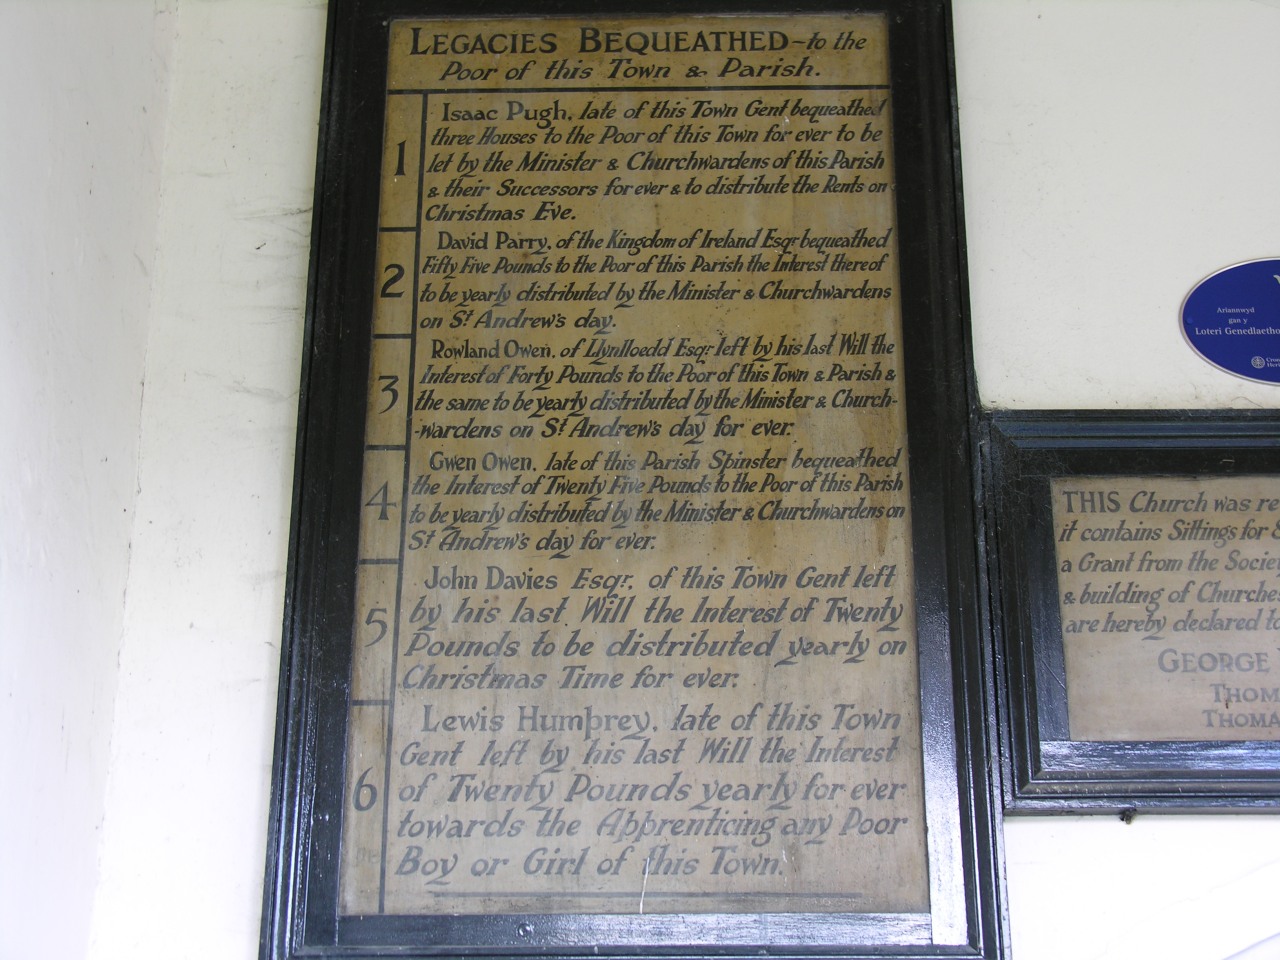 LEGACIES BEQUEATHED - to the
Poor of this Town & Parish.
1
Isaac Pugh, late of this Town Gent bequeathed
three Houses to the Poor of this Town for ever to be
let by the Minister & Churchwardens of this Parish
& their Successors for ever & to distribute the Rents on
Christmas Eve.
2
David Parry, of the Kingdom of Ireland Esqr. bequeathed
Fifty Five Pounds to the Poor of this Parish the Interest there of
to be yearly distributed by the Minister & Churchwardens
on St. Andrew's day.
3
Rowland Owen, of Llynlloedd Esqr. left by his last Will the
Interest of Forty Pounds to the Poor of this Town & Parish &
the same to be yearly distributed by the Minister & Church-
-wardens on St. Andrew's day for ever.
4
Gwen Owen, late of this Parish Spinster bequeathed
the Interest of Twenty Five Pounds to the Poor of this Parish
to be yearly distributed by the Minister & Churchwardens on
St. Andrew's day for ever.
5
John Davies Esqr. of this Town Gent left
by his last Will the Interest of Twenty
Pounds to be distributed yearly on
Christmas Time for ever.
6
Lewis Humphrey, late of this Town
Gent left by his last Will the Interest
of Twenty Pounds yearly for ever
towards the Apprenticing any Poor
Boy or Girl of this Town.
Ariannwyd
gan y
Loteri Genedlaetho
THIS Church was re
it contains Sittings for
a Grant from the Socie
& building of Churches
are hereby declared to
GEORGE
THOM
THOMA